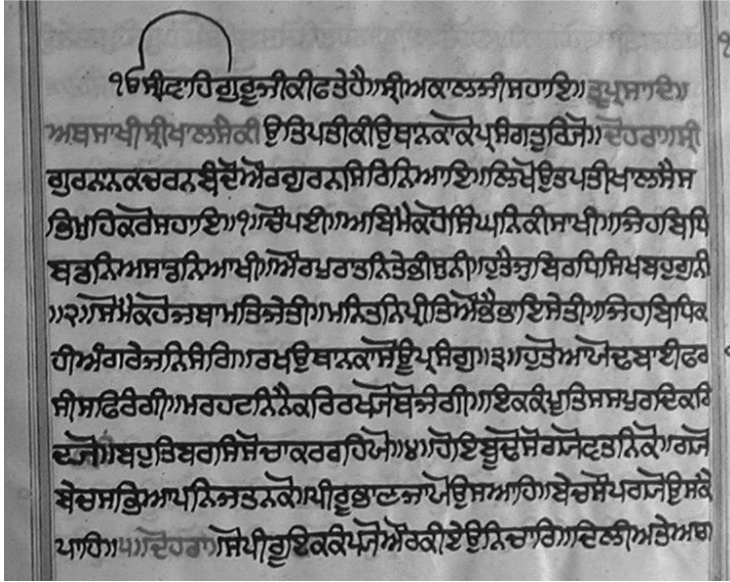 ੧ੳ ਸ੍ਰੀ ਵਾਹਿਗੁਰੂਜੀਕੀਫਤੇਹੈ॥ਸ੍ਰੀਅਕਾਲਜੀਸਹਾਇ॥ਤ੍ਵਪ੍ਰਸਾਦਿ॥
ਅਥਸਾਖੀਸ੍ਰੀਖਾਲਸੇਕੀਉਤਿਪਤੀਕੀਉਥਾਨਕਾਕੋਪ੍ਰਸੰਗਤੁਰਿਜੋ॥ਦੋਹਰਾ॥ਸ੍ਰੀ
ਗੁਰਨਾਨਕਚਰਨਬੰਦੋਔਰਗੁਰਨਸਿਰਿਨਿਆਇ॥ਲਿਖੋਉਤਪਤੀਖਾਲਸੈਸ
ਭਿਮੁਹਿਕਰੋਸਹਾਇ॥੧॥ਚੌਪਈ॥ਅਬਿਮੈਕਹੋਸਿੰਘਨਿਕੀਸਾਖੀ॥ਜਿਹਬਿਧਿ
ਬਡਨਿਅਸਾਡਨਿਆਖੀ॥ਔਰਪੁਰਾਤਨਿਤੇਭੀਸੁਨੀ॥ਹੁਤੈਜੁਬਿਰਧਿਸਿਖਬਹੁਗੁਨੀ
॥੨॥ਸੋਮੈਕਹੋਜਥਾਮਤਿਜੇਤੀ॥ਮਨਿਤਨਿਪ੍ਰੀਤਿਔਭੈਭਾਇਸੇਤੀ॥ਜਿਹਬਿਧਿਕ
ਹੀਅੰਗਰੇਜਨਿਸੰਗਿ॥ਰਖਉਥਾਨਕਾਸੋਊਪ੍ਰਸੰਗੁ॥੩॥ਹੁਤੋਆਖੋਢਬਾਈਫਰ
ਸੀਸਫਿਰੰਗੀ॥ਮਰਹਟਨਿਨੈਕਰਿਰਖ੍ਯੋਥੋਜੰਗੀ॥ਇਕਕੰਪੁਤਿਸਸਪੁਰਦਿਕਰਿ
ਦਯੋ॥ਬਹੁਤਿਬਰਸਿਸੋਚਾਕਰਰਹਿਯੋ॥੪॥ਹੋਇਬੂਢੋਸੋਗਯੋਵਤਨਿਕੋ॥ਗਯੋ
ਬੇਚਸਭਿਆਪਨਿਜਤਨਕੋ॥ਪੀਰੂਭਾਣਜਾਥੋਉਸਆਹਿ॥ਬੇਚਸੌਪਗਯੋਉਸਕੈ
ਪਾਹਿ॥੫॥ਦੋਹਰਾ॥ਸੋਪੀਰੂਇਕਕੰਪਜੋਔਰਕੀਏਉਨਿਚਾਰਿ॥ਦਿਲੀਅਤੇਅਗ